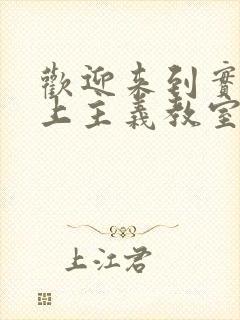 歡迎來到實
上主義教室
上江君